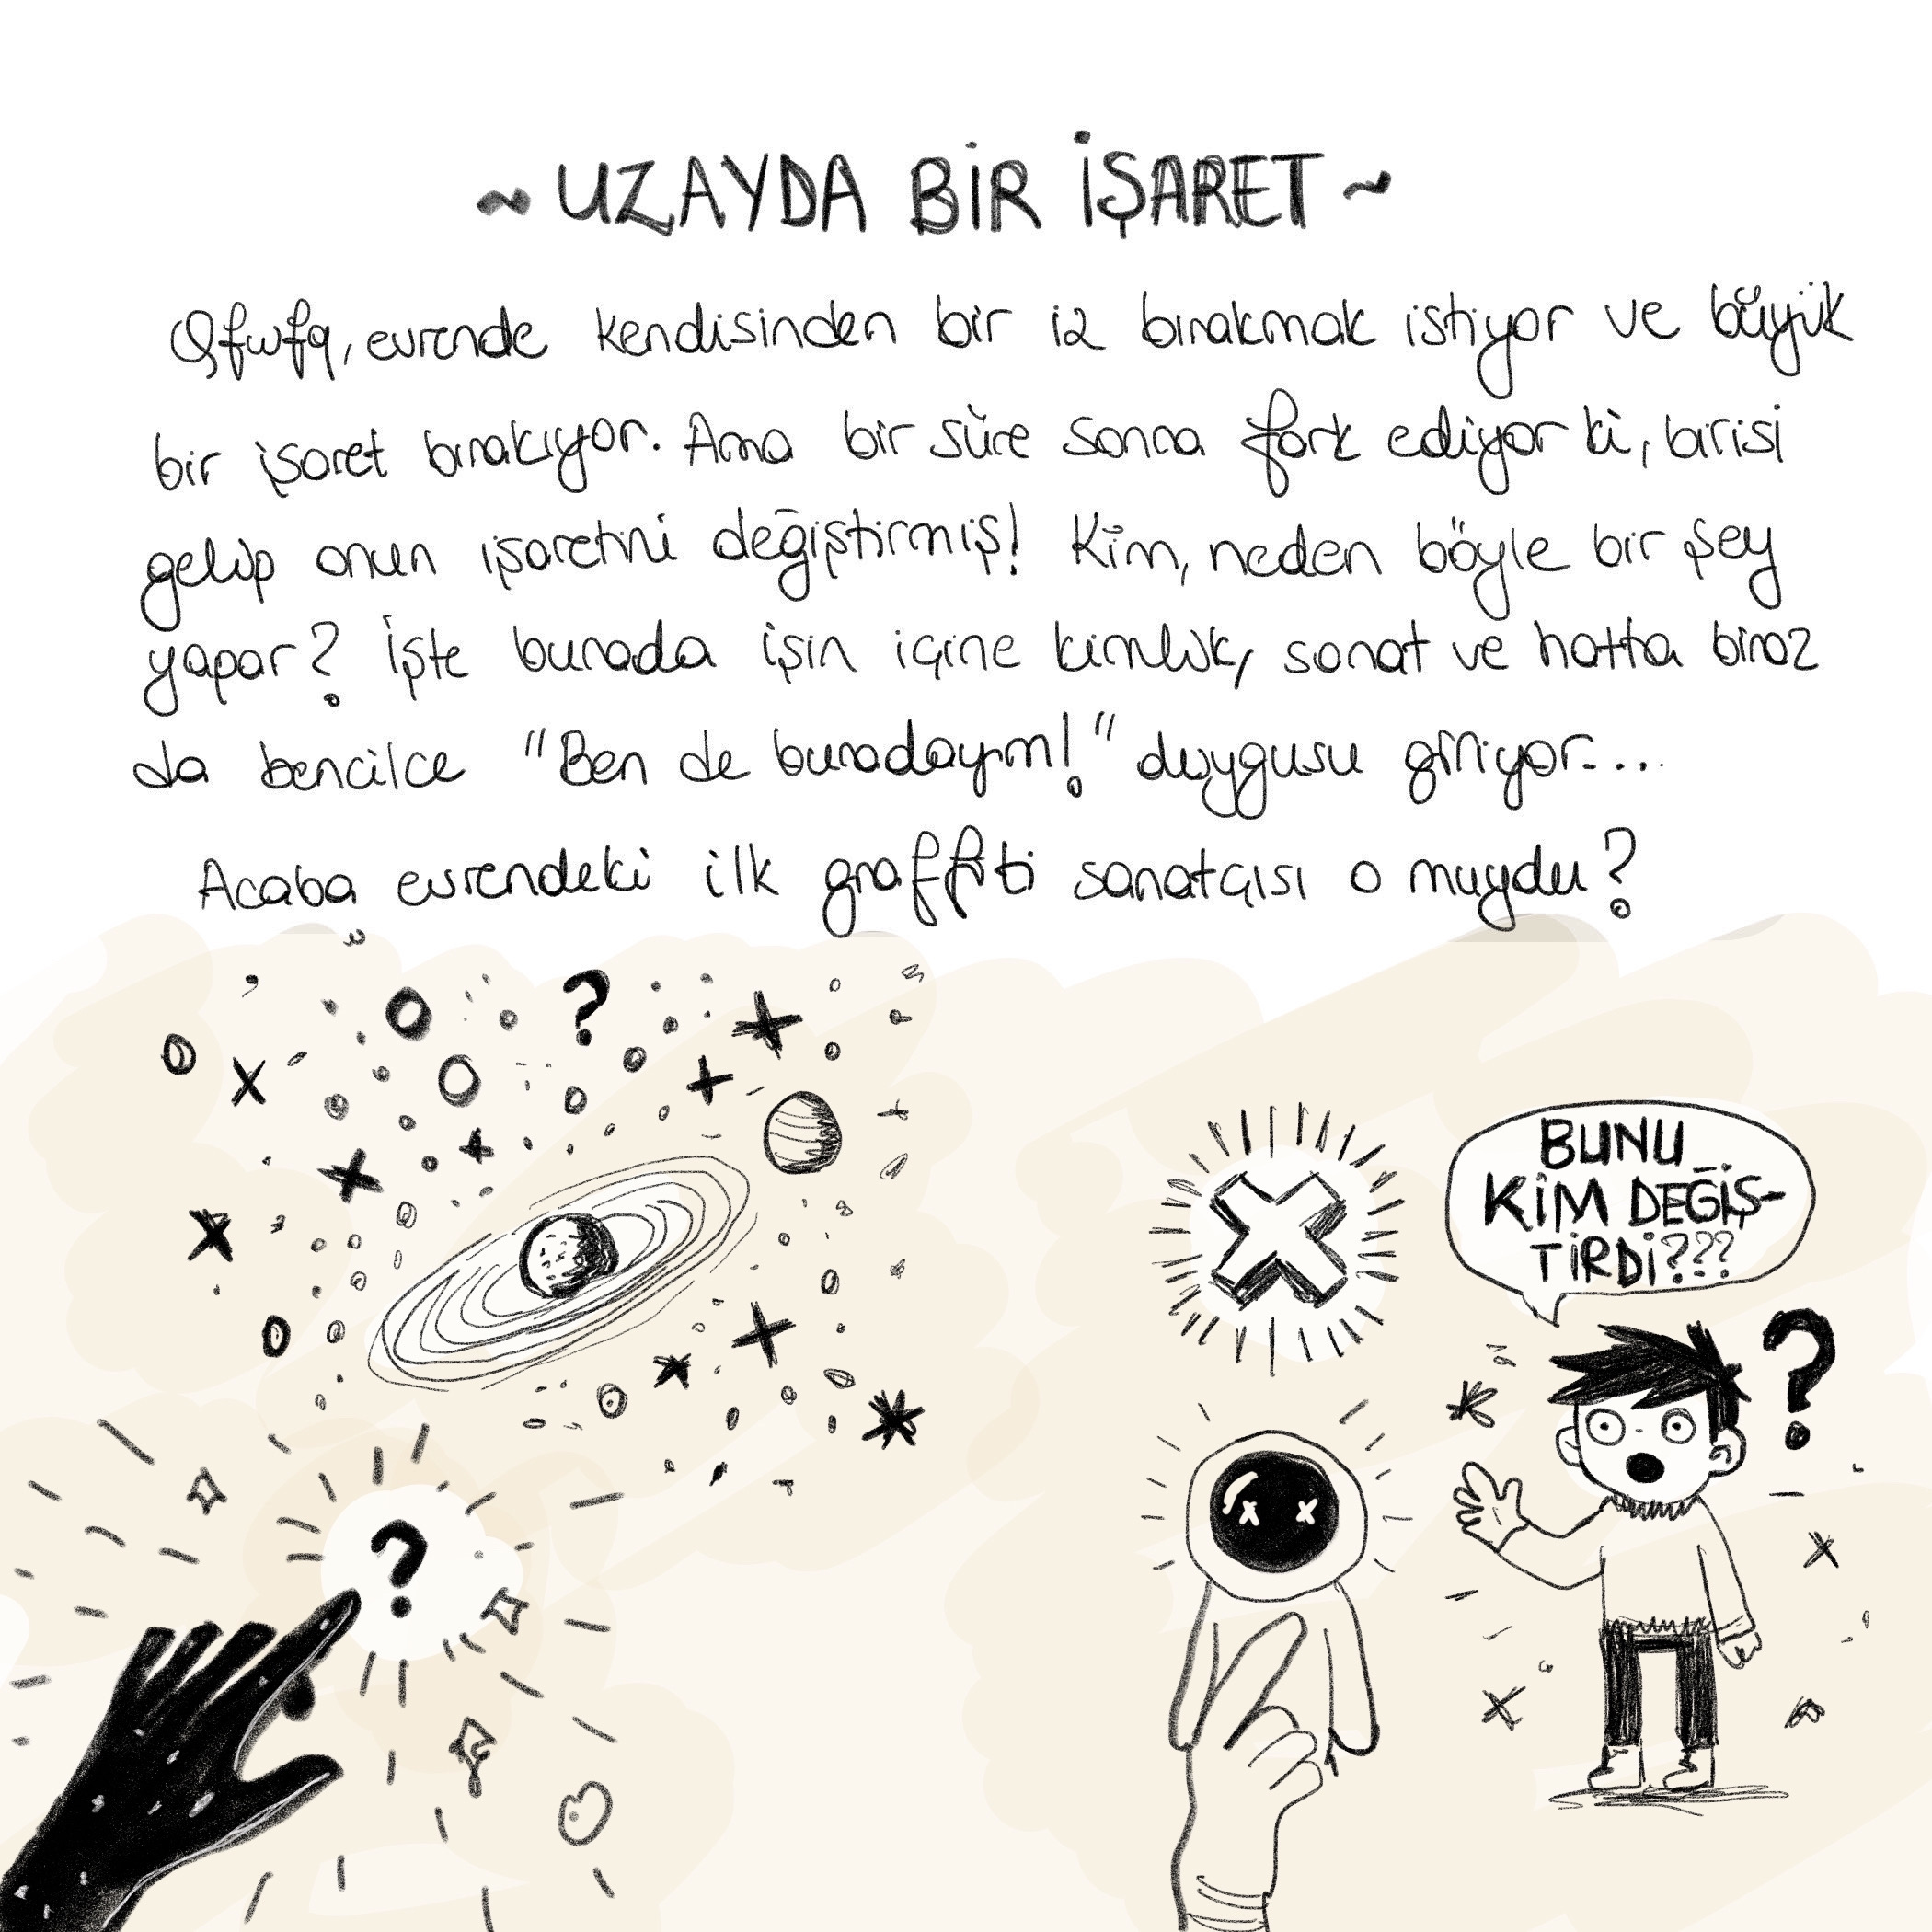 ~ UZAYDA BİR İŞARET ~
Qfwfq, evrende kendisinden bir iz bırakmak istiyor ve büyük
bir işaret bırakıyor. Ama bir süre sonra fark ediyor ki, birisi
gelip onun işaretini değiştirmiş! Kim, neden böyle bir şey
yapar? İşte burada işin içine kimlik, sanat ve hatta biraz
da bencilce "Ben de buradayım!" duygusu giriyor...
Acaba evrendeki ilk graffiti sanatçısı o muydu?
?
BUNU
KİM DEĞİŞ-
TİRDİ???
?
?